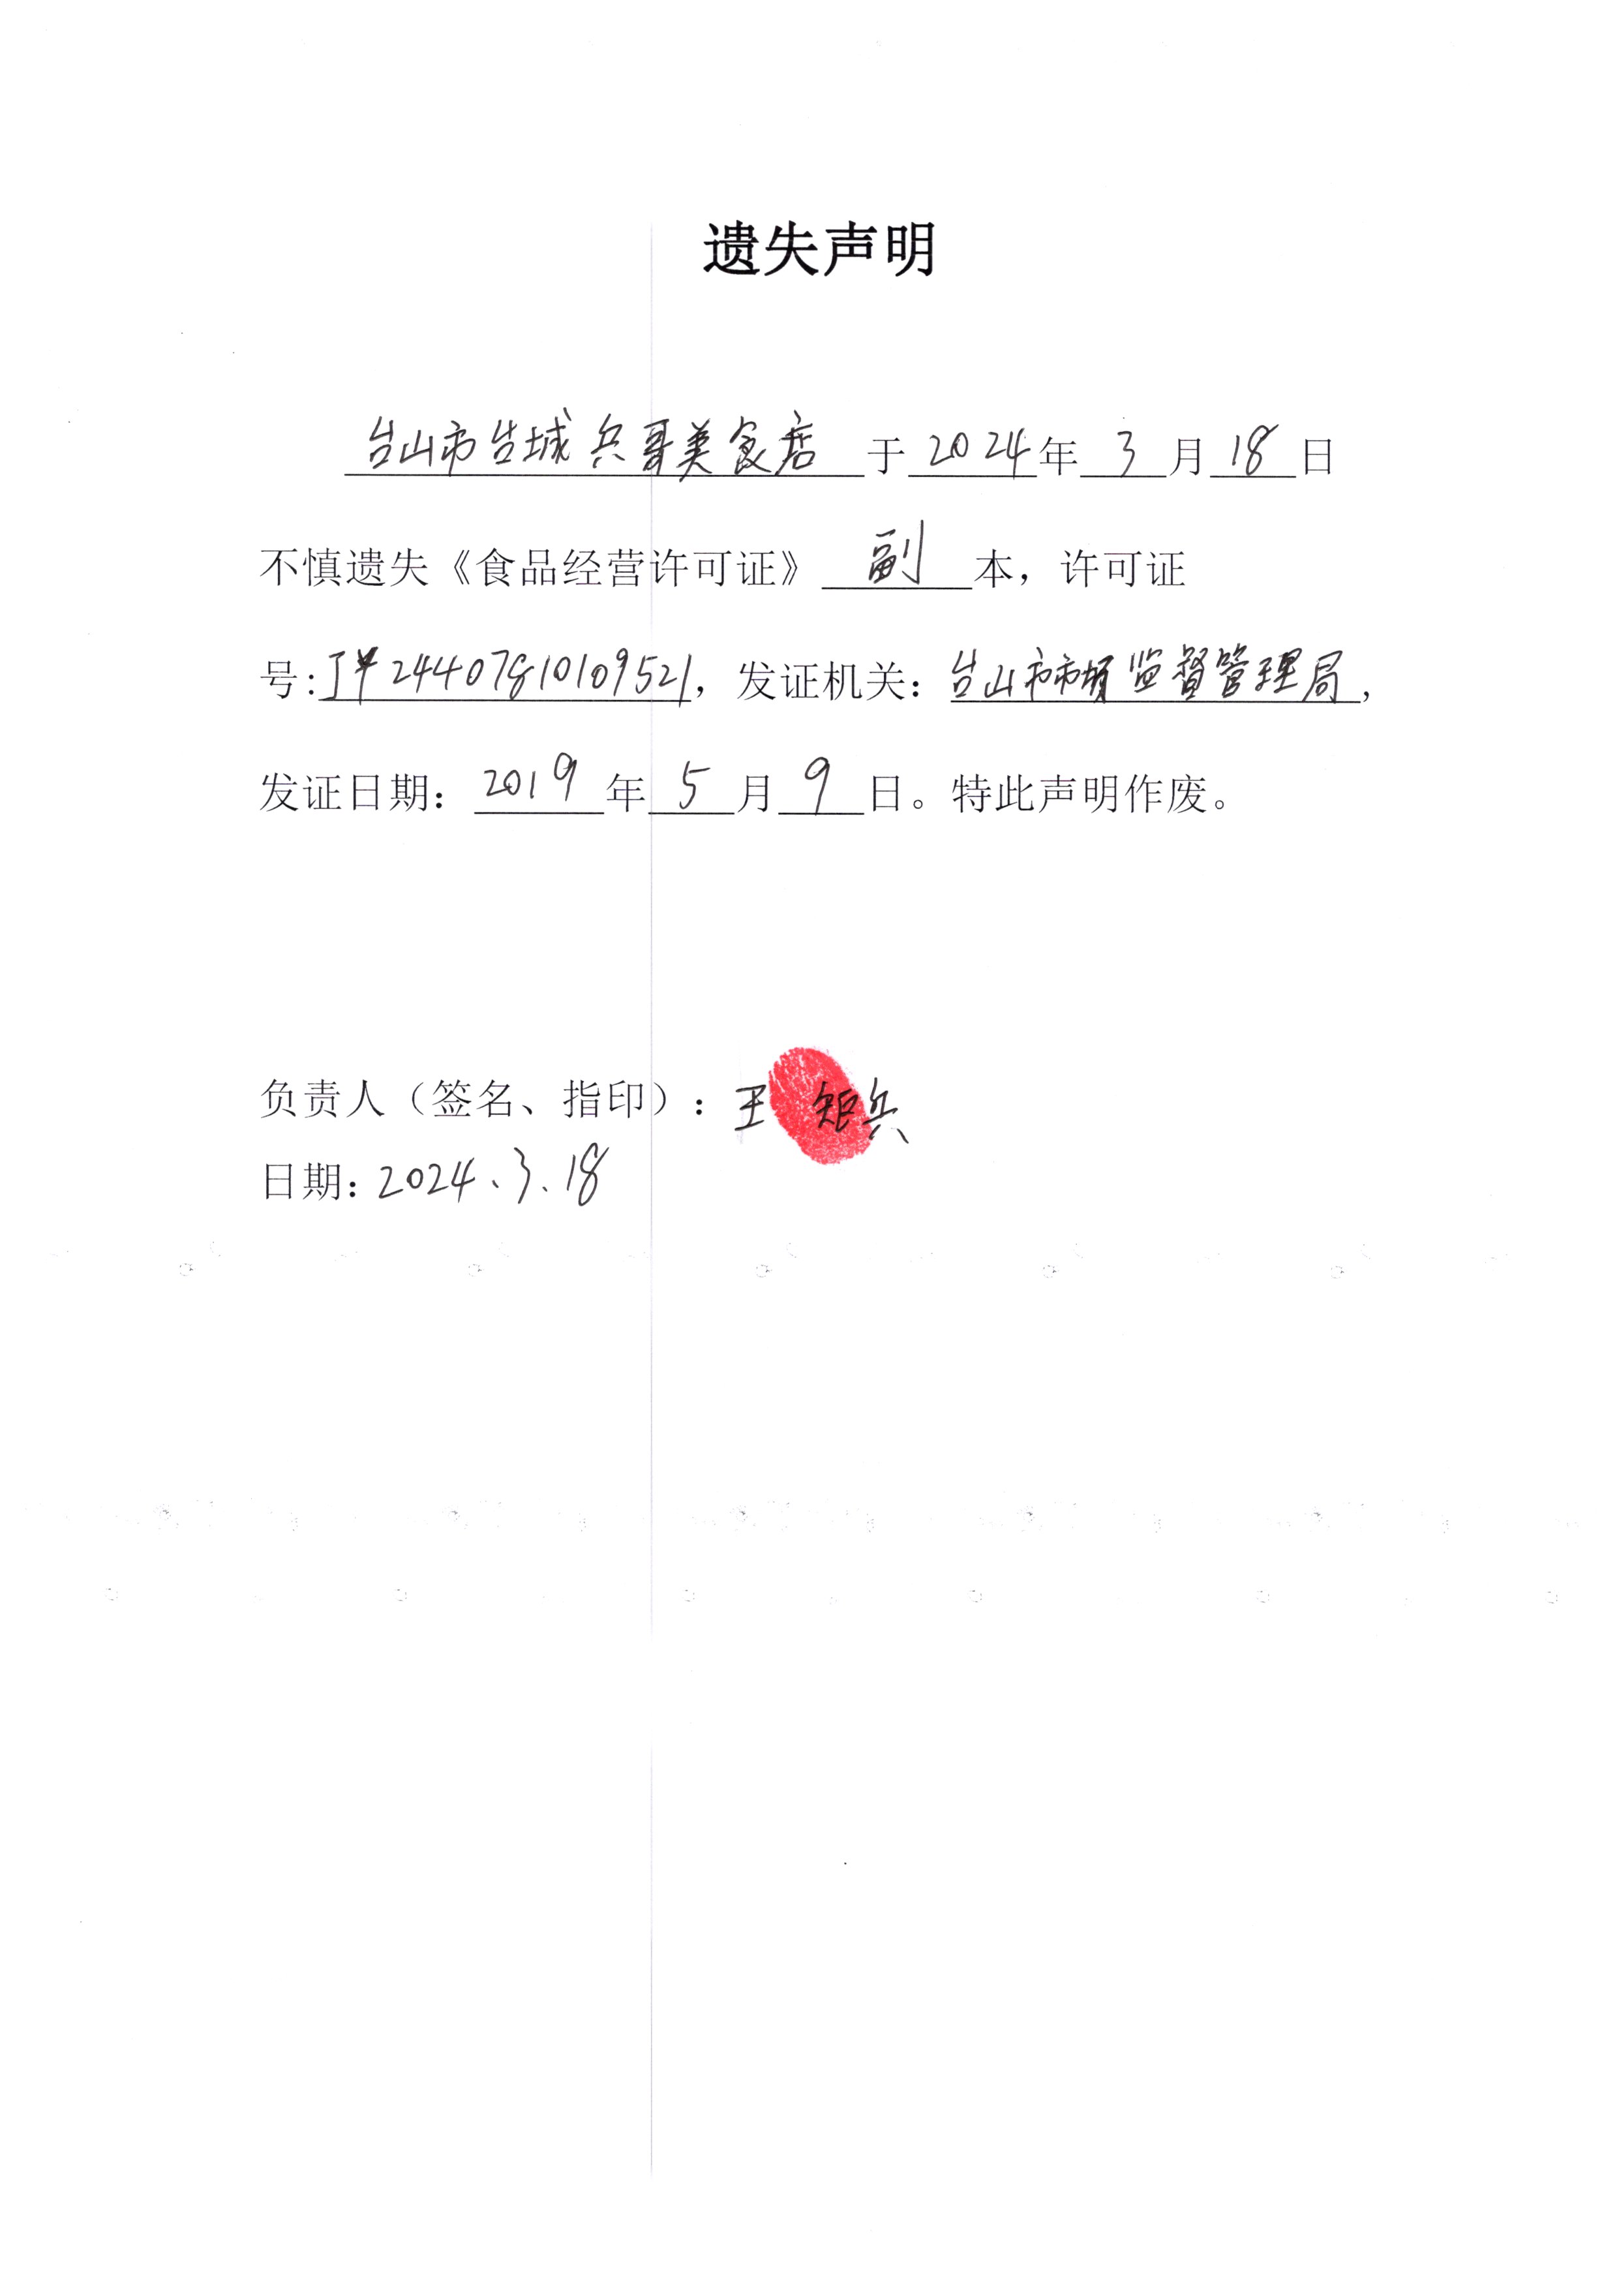 遗失声明
台山市台城兵哥美食店于2024年3月18日
不慎遗失《食品经营许可证》副本，许可证
号:JY24407810109521，发证机关：台山市市场监督管理局，
发证日期：2019年5月9日。特此声明作废。
负责人（签名、指印）：王矩兵
日期：2024.3.18